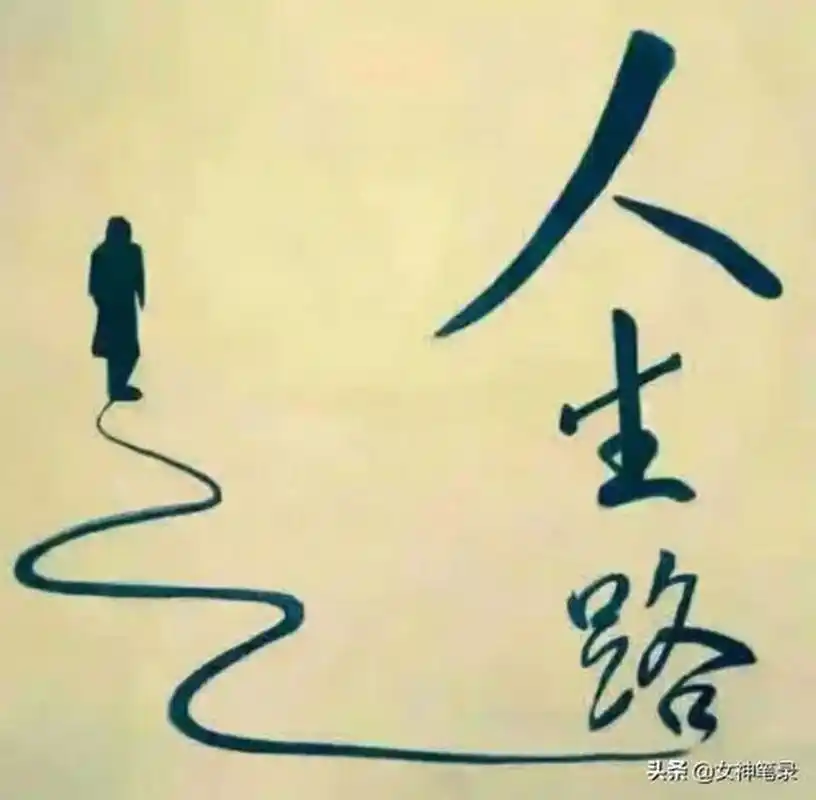 人生路
头条 @女神笔录